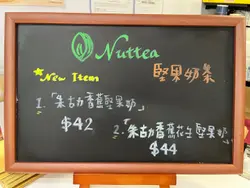 Nuttea
堅果奶茶
New Item
1.「朱古力香蕉堅果奶」
$42
2.「朱古力香蕉花生堅果奶」
$44